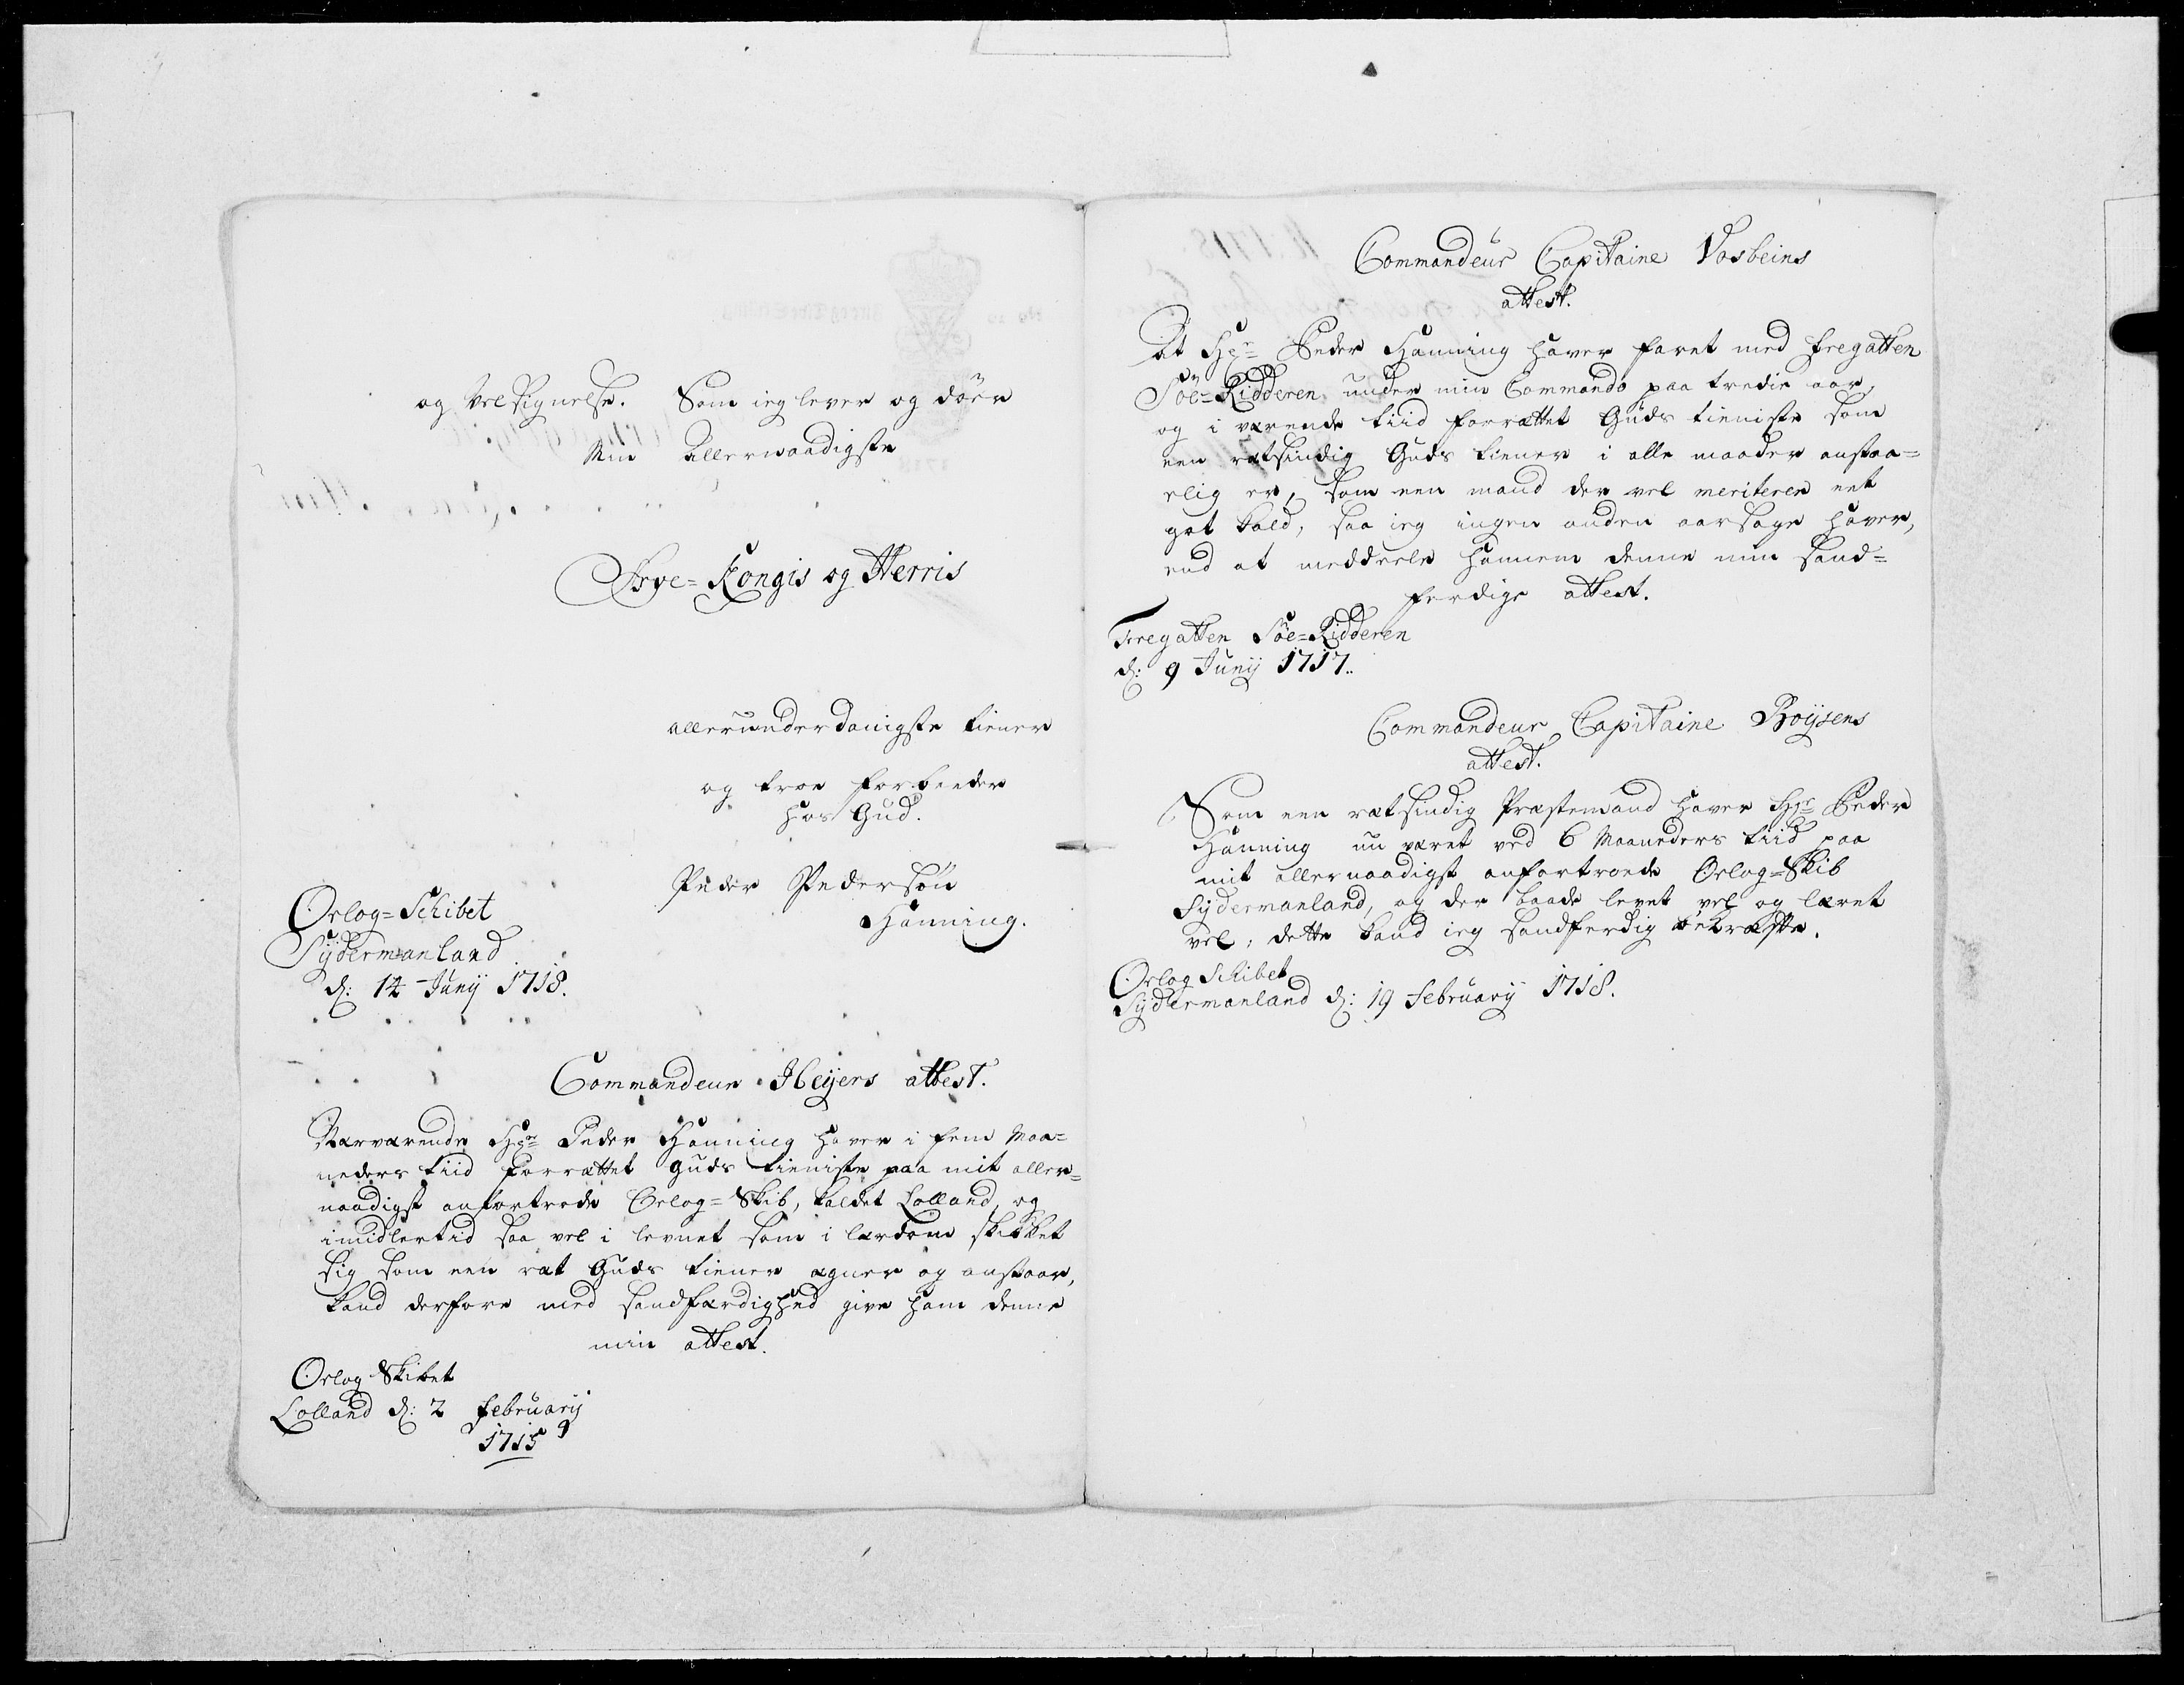 og Velsignelse. Som ieg lever og döer
Min Allernaadigste
Arve=Kongis og Herris
allerunderdanigste tiener
og troe forbeeder
hos Gud.
Peder Pedersön
Hanning.
Orlog=Schibet
Sÿdermanland
d: 14 Junij 1718.
Commandeur Heÿers attest.
Nærværende Hr: Peder Hanning haver i fem Maa=
neders tiid forrættet Guds tieniste paa mit aller=
naadigst anfortrode Orlog=Skib, kaldet Lolland, og
imidlertid saa vel i levnet som i lærdom skikket
sig som een ræt Guds tiener egner og anstaar,
kand derfore med sandfærdighed give ham denne
min attest.
Orlog Skibet
Lolland d: 2 Februarij
1715
Commandeur Capitaine Vosbeins
attest.
At Hr: Peder Hanning haver faret med Fregatten
Söe=Ridderen under min Commando paa tredie aar,
og i værende tiid forrættet Guds tieniste som
een rætsindig Guds tiener i alle maader anstaa=
elig er, som een mand der vel meriterer eet
got kald, saa ieg ingen anden aarsage haver,
end at meddeele hannem denne min sand=
ferdige attest.
Fregatten Söe=Ridderen
d: 9 Junij 1717.
Commandeur Capitaine Boÿsens
attest.
Som een rætsindig Præstemand haver Hr: Peder
Hanning nu været ved 6 Maaneders tiid paa
mit allernaadigst anfortroede Orlog=Skib
Sÿdermanland, og der baade levet vel og læret
vel, dette kand ieg sandferdig bekræfte.
Orlog Schibet
Sÿdermanland d: 19 Februarij 1718.